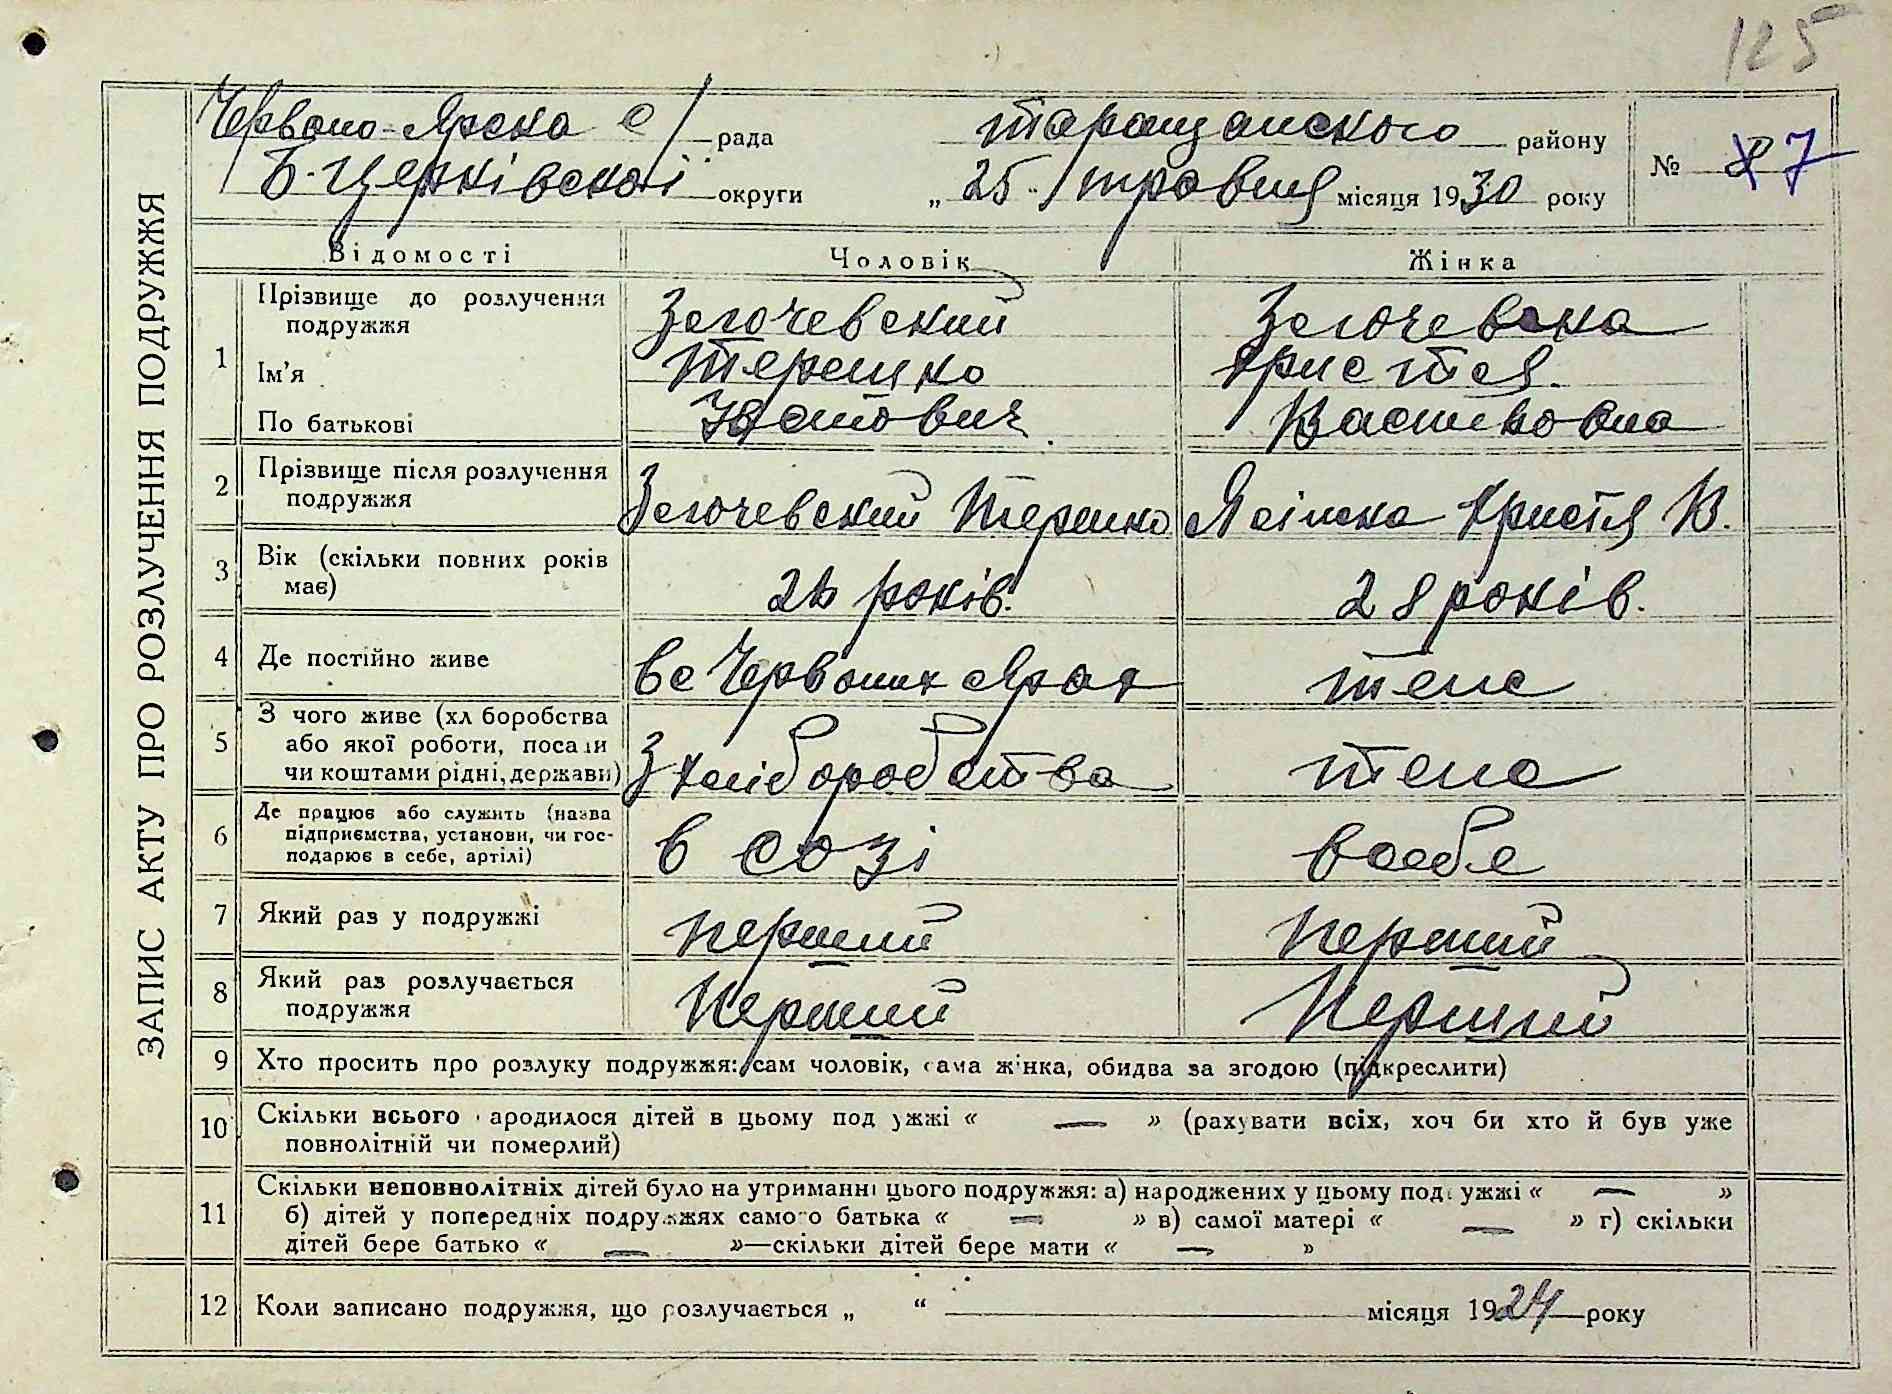 125
Червоно-Ярска с/ рада Таращанского району
Б-Церківської округи „25" травня місяця 1930 року
№ 7
ЗАПИС АКТУ ПРО РОЗЛУЧЕННЯ ПОДРУЖЖЯ
Відомості Чоловік Жінка
1 Прізвище до розлучення подружжя Зегочевский Зегочевска
Ім'я Терешко Христя.
По батькові Василовна
2 Прізвище після розлучення подружжя Зегочевский Терешко Христя В.
3 Вік (скільки повних років має) 26 років. 28 років.
4 Де постійно живе в с Червоних Ярах теж
5 З чого живе (хліборобства
або якої роботи, посади
чи коштами рідні, держави) З хліборобства тежа
6 Де працює або служить (назва
підприємства, установи, чи гос-
подарює в себе, артілі) в созі в себе
7 Який раз у подружжі перший перший
8 Який раз розлучається
подружжя Перший Перший
9 Хто просить про розлуку подружжя: сам чоловік, сама жінка, обидва за згодою (підкреслити)
10 Скільки всього народилося дітей в цьому подружжі « — » (рахувати всіх, хоч би хто й був уже
повнолітній чи померлий)
11 Скільки неповнолітніх дітей було на утриманні цього подружжя: а) народжених у цьому подружжі « — »
б) дітей у попередніх подружжях самого батька « — » в) самої матері « — » г) скільки
дітей бере батько « — »—скільки дітей бере мати « — »
12 Коли записано подружжя, що розлучається „ “ місяця 1924 року